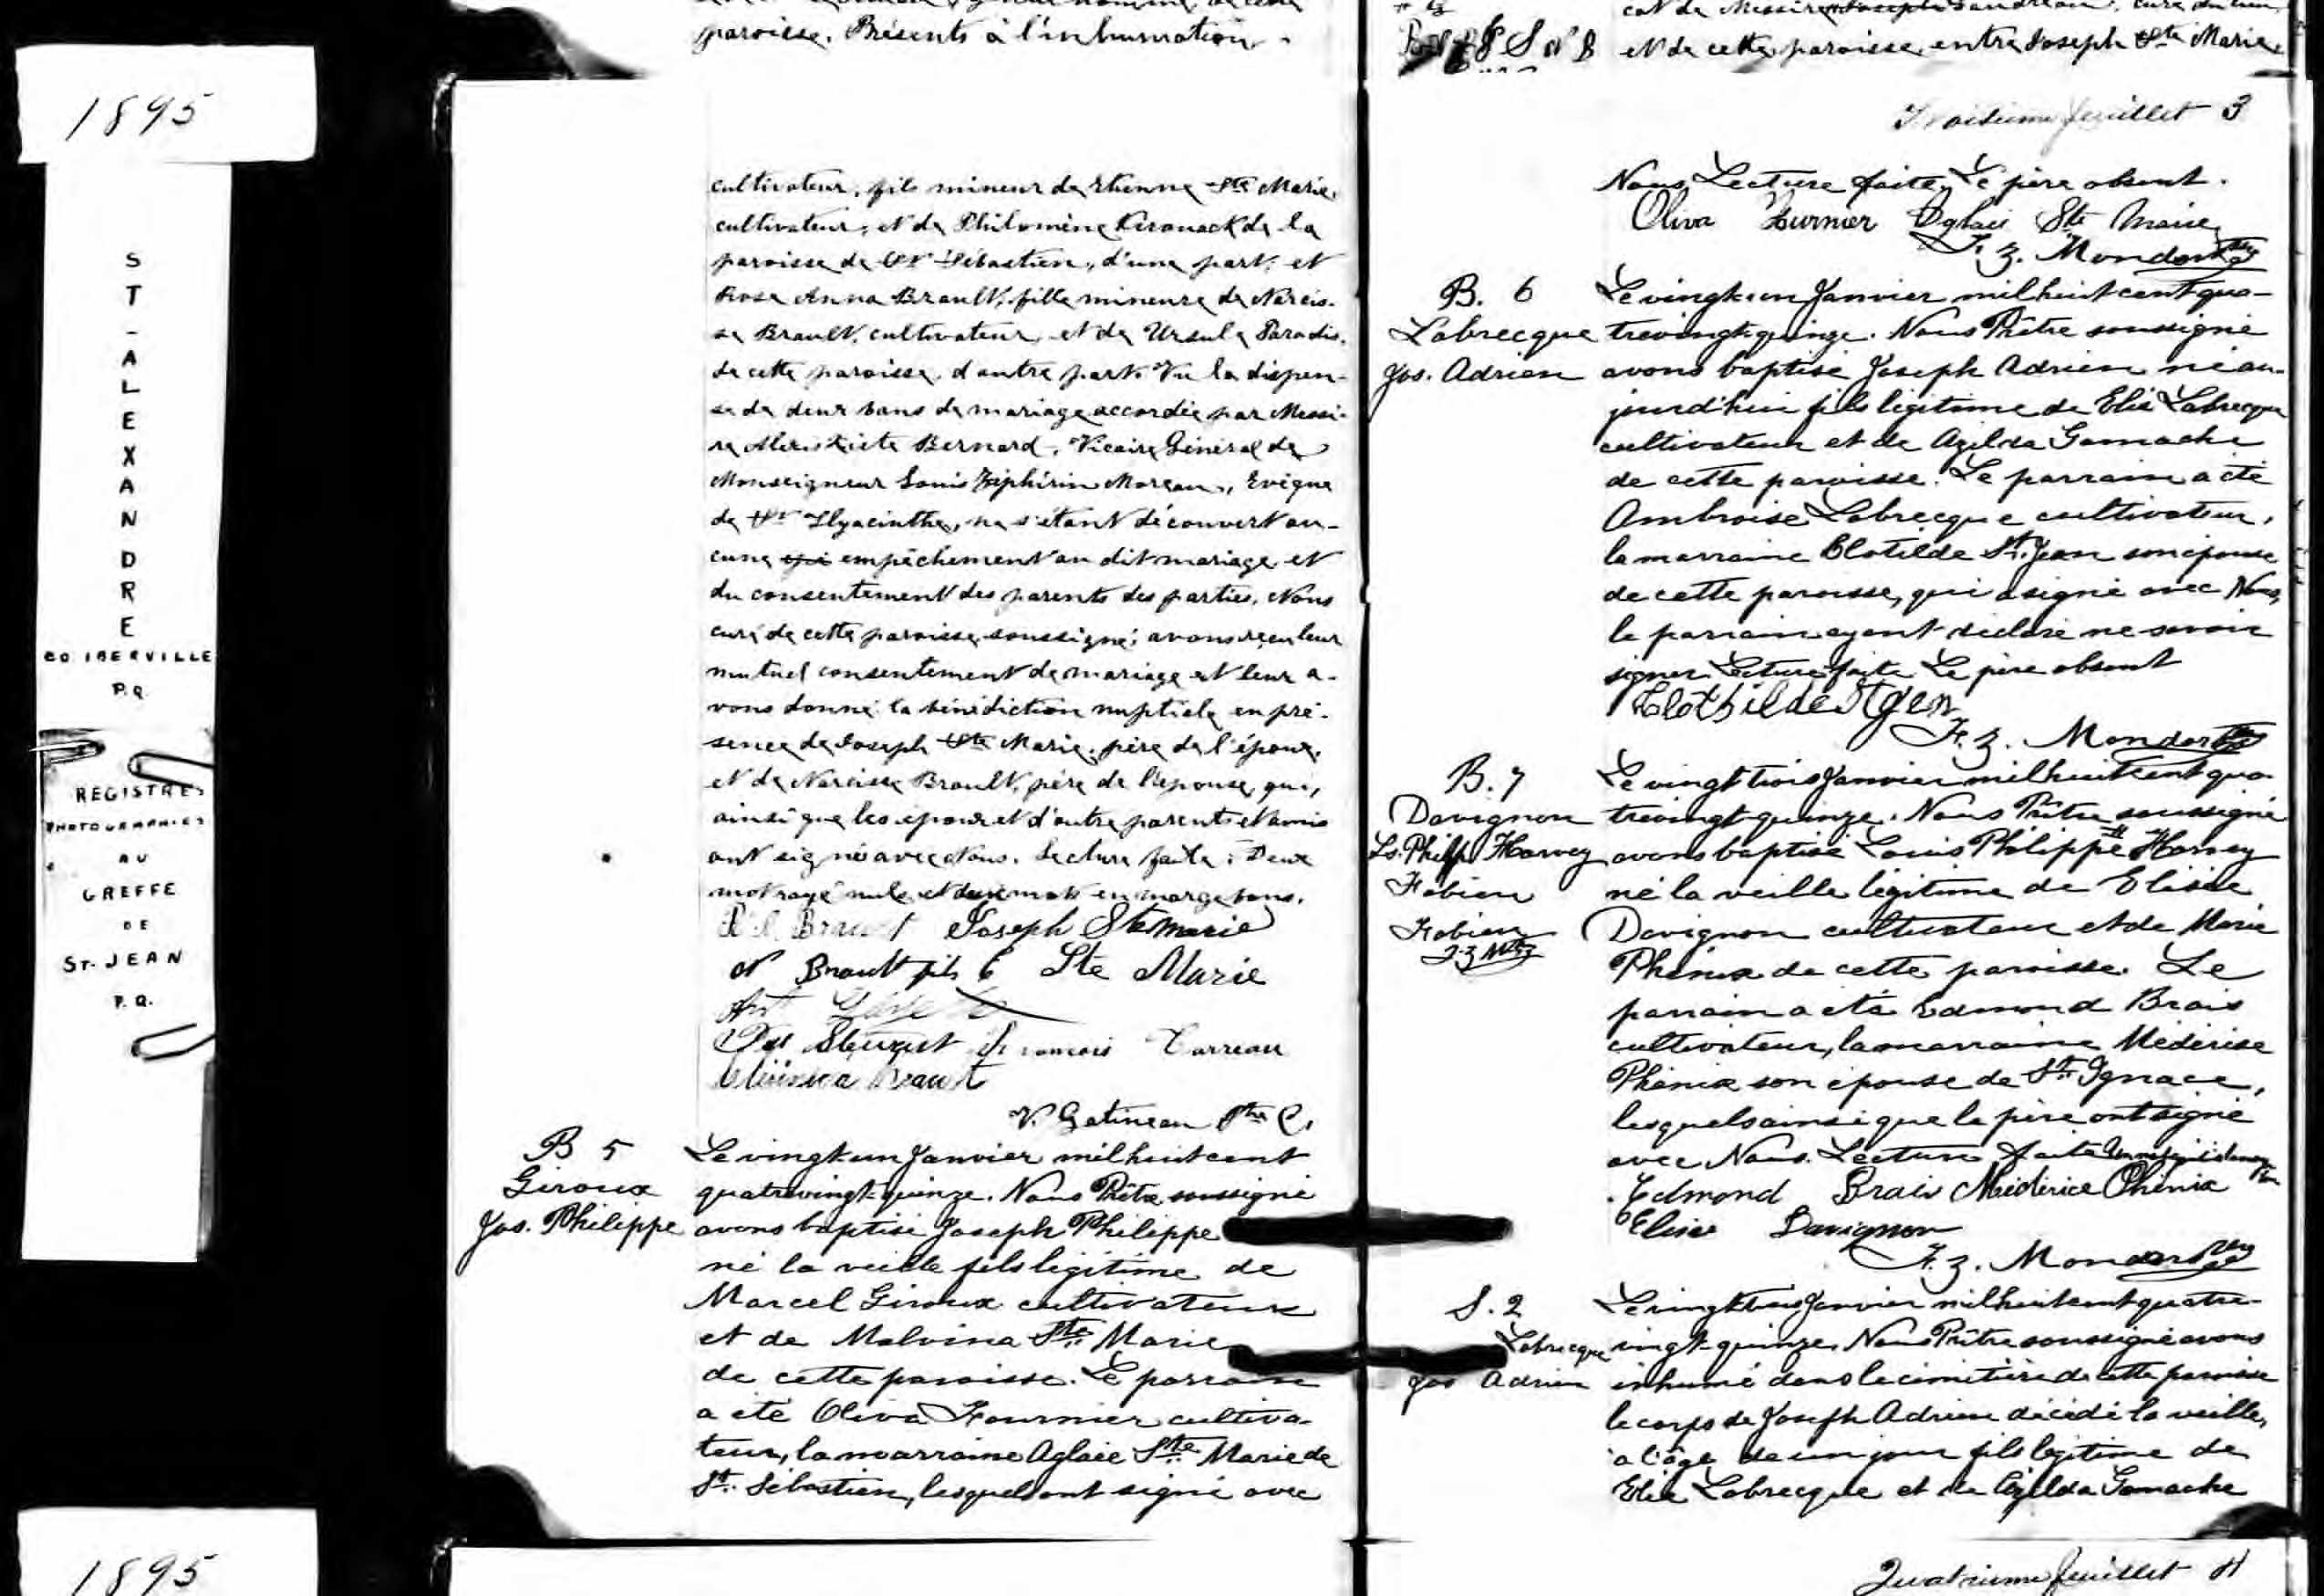 1895
S
T
-
A
L
E
X
A
N
D
R
E
CO. IBERVILLE
P.Q.
REGISTRES
PHOTOGRAPHIES
AU
GREFFE
DE
ST. JEAN
P.Q.
1895
paroisse. Présents à l'inhumation
cultivateur, fils mineur de Etienne Ste Marie,
cultivateur, et de Philomène Kerouack de la
paroisse de St Sébastien, d'une part, et
Rose Anna Brault, fille mineure de Narcis-
se Brault, cultivateur et de Ursule Paradis,
de cette paroisse, d'autre part. Vu la dispen-
se de deux bans de mariage accordée par Messi-
re Bernard, Vicaire Général de
Monseigneur Louis Zéphirin Moreau, Evêque
de St Hyacinthe, ne s'étant découvert au-
cun empêchement au dit mariage et
du consentement des parents des parties, Nous
curé de cette paroisse soussigné, avons reçu leur
mutuel consentement de mariage et leur a-
vons donné la bénédiction nuptiale en pré-
sence de Joseph Ste Marie, père de l'époux,
et de Narcisse Brault, père de l'épouse, qui,
ainsi que les époux et d'autre parents et amis
ont signé avec Nous. Lecture faite. Deux
mot rayé nuls et deux mots en marge bons.
Brault Joseph Ste marie
N Brault fils E Ste Marie
Francois Tarreau
V. Gatineau Ptre C.
B 5
Giroux
Jos. Philippe
Le vingt un Janvier mil huit cent
quatrevingt-quinze. Nous Prêtre soussigné
avons baptisé Joseph Philippe
né la veille fils légitime de
Marcel Giroux cultivateur
et de Malvina Ste. Marie
de cette paroisse. Le parrain
a été Oliva Fournier cultiva-
teur, la marraine Aglaée Ste. Marie de
St. Sébastien, lesquels ont signé avec
et de cette paroisse, entre Joseph Ste Marie,
Troisième feuillet 3
Nous Lecture faite. Le père absent.
Oliva Furnier Aglais Ste Marie
F. Z. Mondor Ptre
B. 6
Labrecque
Jos. Adrien
Le vingt-un Janvier mil huit cent qua-
trevingt-quinze. Nous Prêtre soussigné
avons baptisé Joseph Adrien né au-
jourd'hui fils légitime de Elie Labrecque
cultivateur et de Azilda Gamache
de cette paroisse. Le parrain a été
Ambroise Labrecque cultivateur,
la marraine Clotilde St. Jean son épouse
de cette paroisse, qui a signé avec Nous,
le parrain ayant déclaré ne savoir
signer. Lecture faite. Le père absent
Clothilde St gen
F. Z. Mondor Ptre
B. 7
Davignon
Ls. Philip. Harvey
Fabien
Fabien
F. Z. M
Le vingt trois Janvier mil huit cent qua-
trevingt-quinze. Nous Prêtre soussigné
avons baptisé Louis Philippe # Harvey
né la veille légitime de Elisée
Davignon cultivateur et de Marie
Phénix de cette paroisse. Le
parrain a été Edmond Brais
cultivateur, la marraine Médérise
Phénix son épouse de St. Ignace,
lesquels ainsi que le père ont signé
avec Nous. Lecture faite
Edmond Brais Médérice Phénix
Elisé Davignon
F. Z. Mondor Ptre
S. 2
Labrecque
Jos Adrien
Le vingt trois Janvier mil huit cent quatre-
vingt-quinze, Nous Prêtre soussigné avons
inhumé dans le cimitière de cette paroisse
le corps de Joseph Adrien décédé la veille,
à l'âge de un jour fils légitime de
Elie Labrecque et de Azilda Gamache
Quatrième feuillet 4